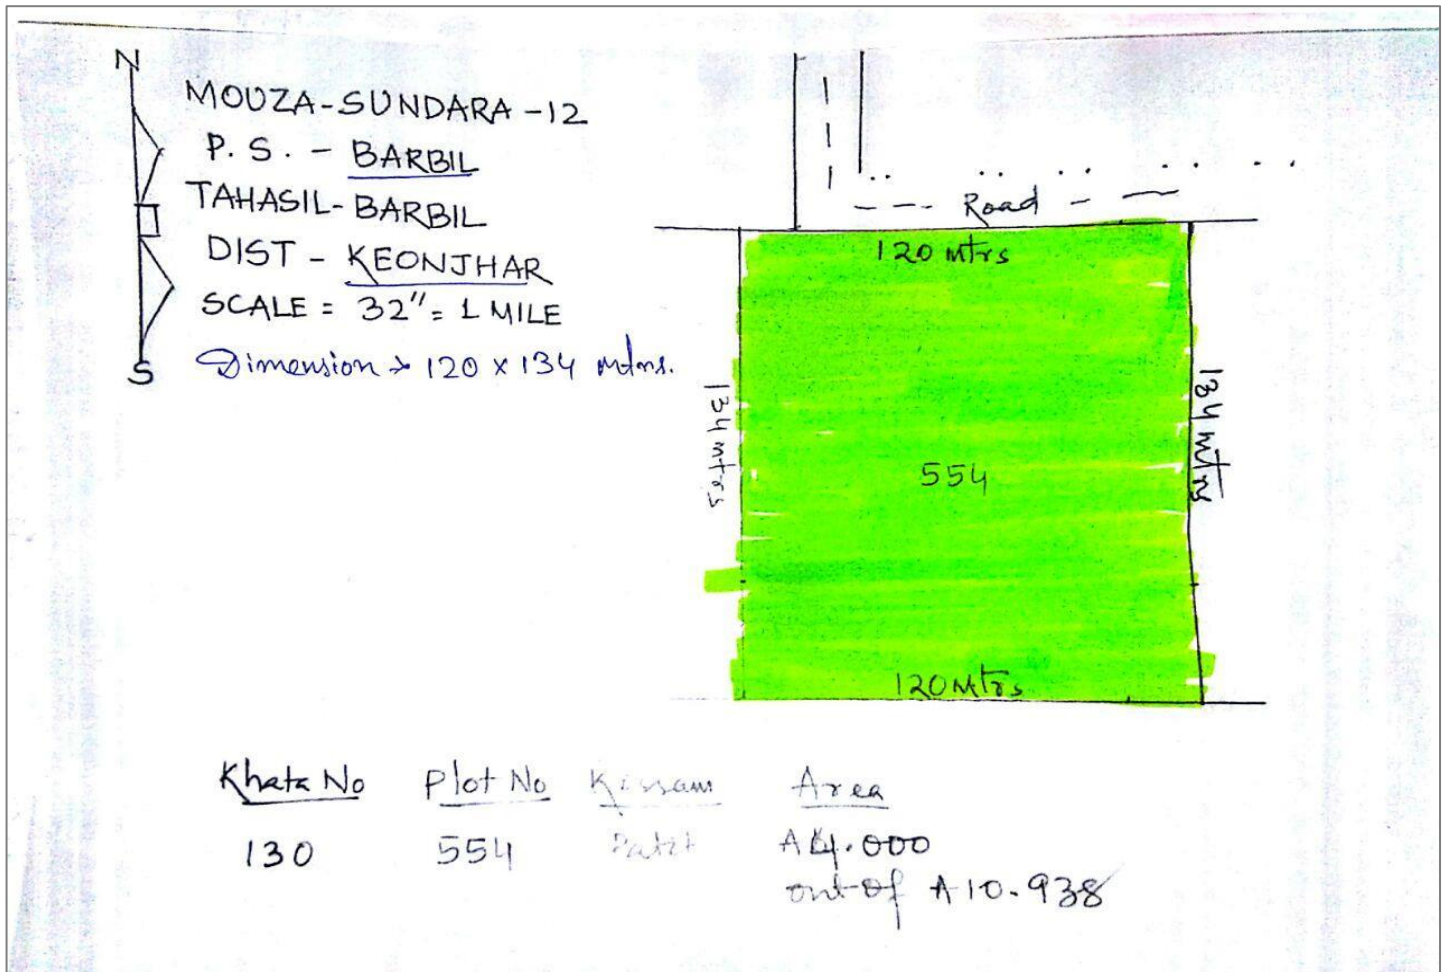 N
MOUZA-SUNDARA-12
P. S. - BARBIL
TAHASIL-BARBIL
DIST - KEONJHAR
SCALE = 32" = 1 MILE
Dimension → 120 x 134 mtrs.
S
Road
120 mtrs
134 mtrs
554
134 mtrs
120 Mtrs
Khata No Plot No Kissam Area
130 554 Patit A4.000
out of A10.938